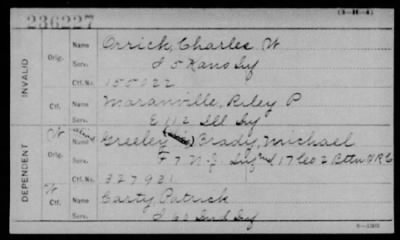 (3-H-4)
236227
INVALID
Orig.
Name Orrick, Charles W
Serv. I 5 Kans Inf
Ctf. No. 155022
Ctf.
Name Maranville, Riley P
Serv. E 112 Ill Inf
DEPENDENT
W
Orig.
Name Greeley Brady, Michael
Serv. F 7 N.J. Inf and I 17 Co 2 Battn V.R.C
Ctf. No. 327921
W
Ctf.
Name Carty Patrick
Serv. I 60 Ind Inf